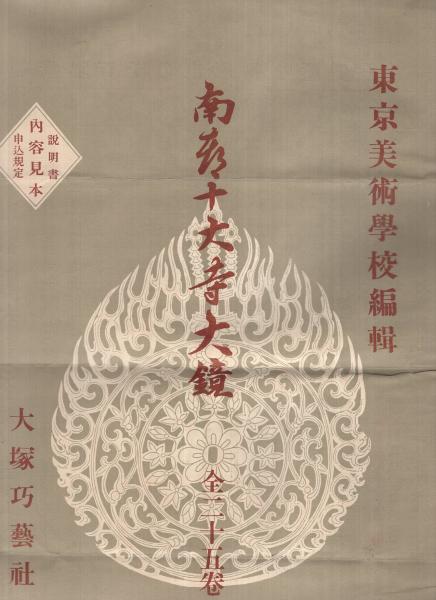 東京美術學校編輯
南都十大寺大鏡
全二十五卷
說明書
內容見本
申込規定
大塚巧藝社